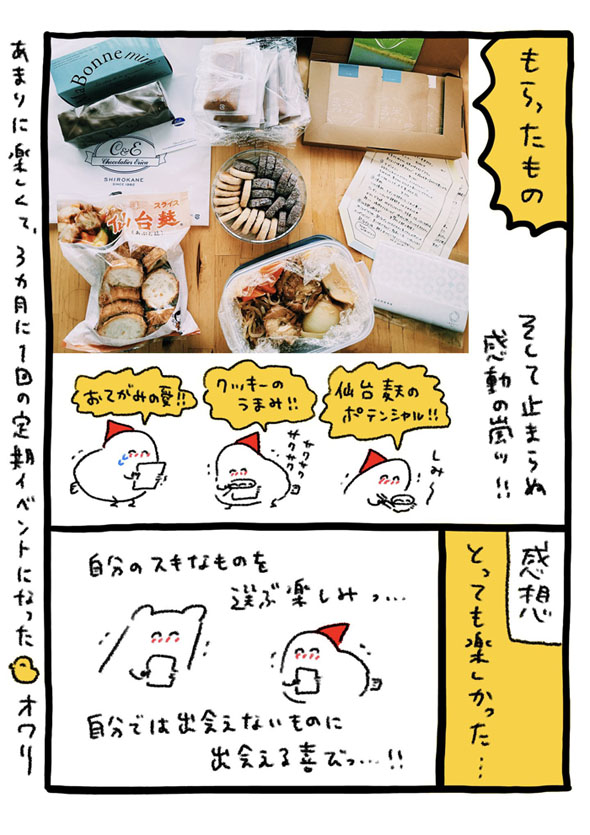 もらったもの
Bonne mi
C&E
Chocolatier Erica
SHIROKANE
SINCE 1982
スライス
仙台麩
(あぶら麩)
そして止まらぬ
感動の嵐ッ!!
仙台麸の
ポテンシャル!!
しみ〜
クッキーの
うまみ!!
サクサクサク
サクサク
おてがみの愛!!
感想
とっても楽しかった…
自分のスキなものを
選ぶ楽しみっ…
自分では出会えないものに
出会える喜びっ…!!
あまりに楽しくて、3ヵ月に1回の定期イベントになった オワリ